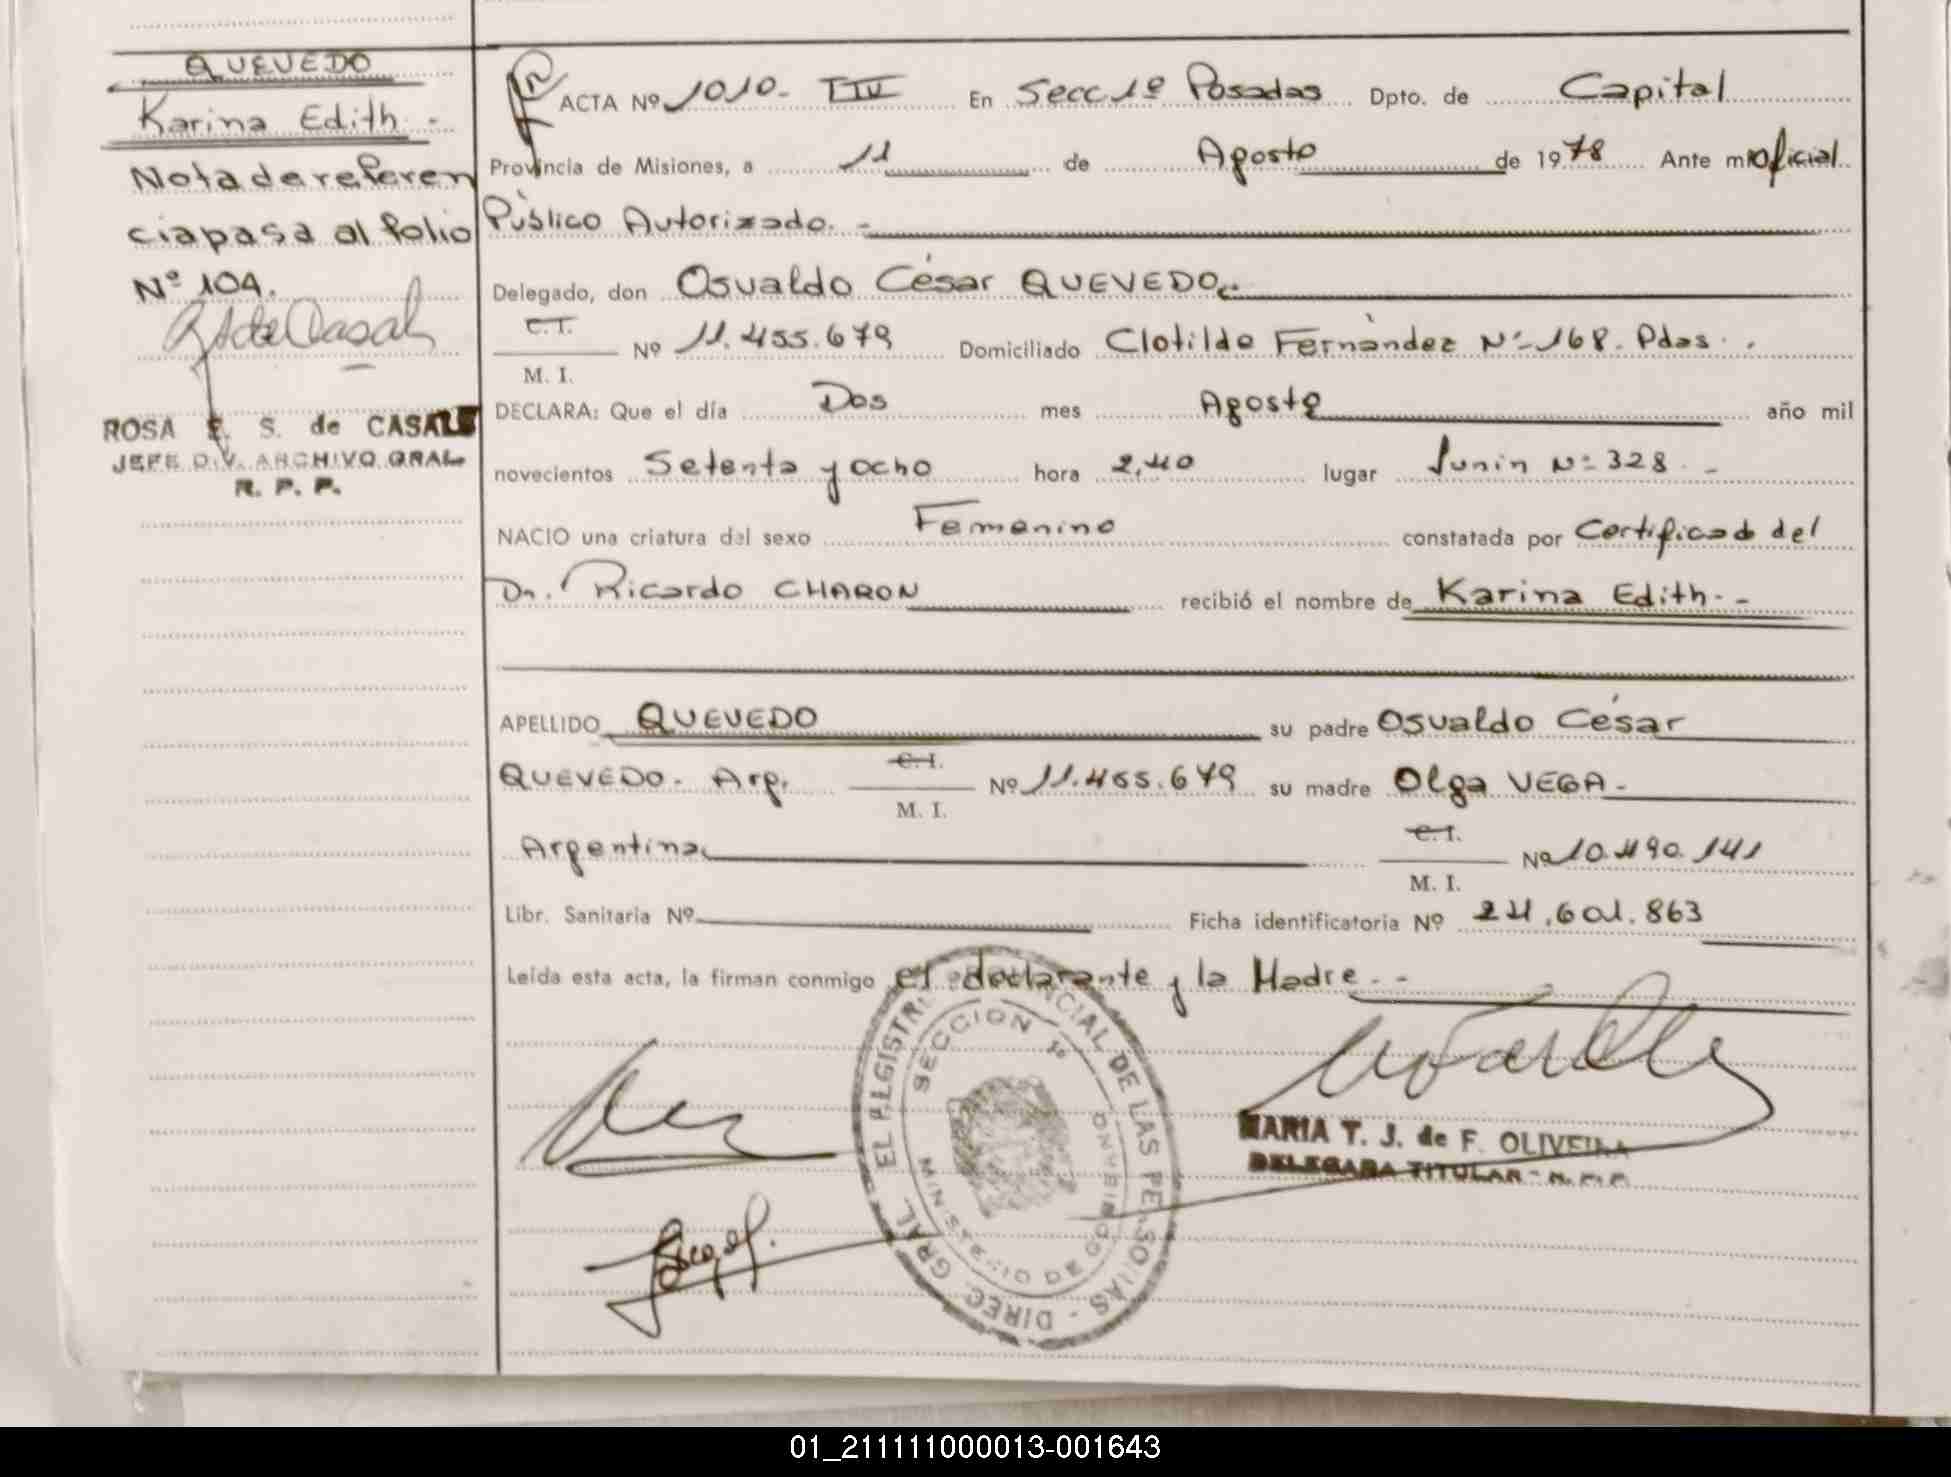 QUEVEDO
Karina Edith. -
Nota de referen
cia pasa al folio
Nº 104.
ROSA E. S. de CASALE
JEFE DIV. ARCHIVO GRAL.
R. P. P.
ACTA Nº 1010- TIV En Secc 1º Posadas Dpto. de Capital
Provincia de Misiones, a 11 de Agosto de 1978 Ante mi Oficial
Público Autorizado. -
Delegado, don Osvaldo César QUEVEDO.
C.I.
Nº 11.455.679 Domiciliado Clotilde Fernández Nº 168. Pdas.
M. I.
DECLARA: Que el día Dos mes Agosto año mil
novecientos Setenta y ocho hora 2,40 lugar Junin Nº 328. -
NACIO una criatura del sexo Femenino constatada por Certificado del
Dr. Ricardo CHARON recibió el nombre de Karina Edith. -
APELLIDO QUEVEDO su padre Osvaldo César
C.I.
QUEVEDO. Arg. Nº 11.455.679 su madre Olga VEGA -
M. I.
C.I.
Argentina Nº 10.490.141
M. I.
Libr. Sanitaria Nº Ficha identificatoria Nº 24.601.863
Leída esta acta, la firman conmigo el declarante y la Madre. -
DIREC. GRAL. EL REGISTRO PROVINCIAL DE LAS PERSONAS -
SECCION 1º
MINISTERIO DE GOBIERNO
MARIA T. J. de F. OLIVEIRA
DELEGADA TITULAR - R. P. P.
01_211111000013-001643